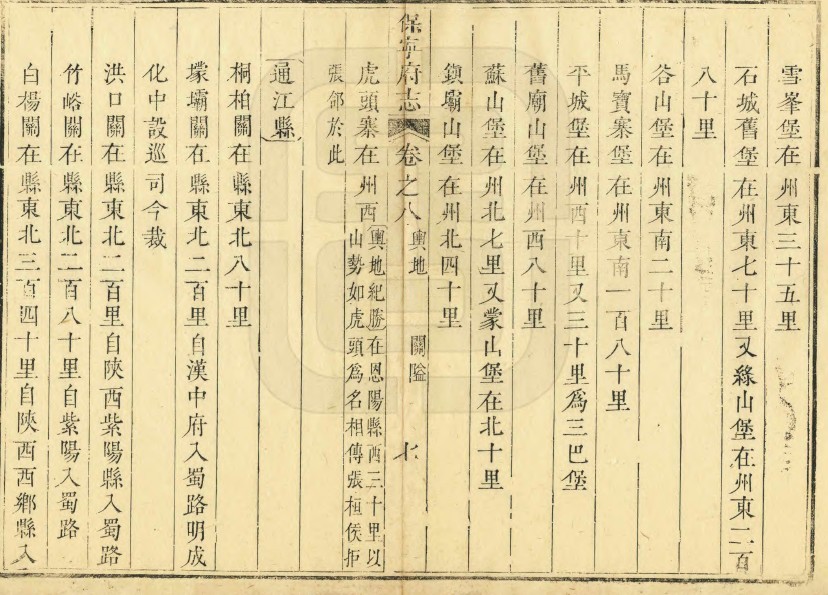 雪峯堡在州東三十五里
石城舊堡在州東七十里又綠山堡在州東二百
八十里
谷山堡在州東南二十里
馬寶寨堡在州東南一百八十里
平城堡在州西十里又三十里爲三巴堡
舊廟山堡在州西八十里
蘇山堡在州北七里又蒙山堡在北十里
鎮壩山堡在州北四十里
保寧府志 卷之八 輿地 關隘 七
虎頭寨在州西 輿地紀勝在恩陽縣西三十里以
山勢如虎頭爲名相傳張桓侯拒
張郃於此
通江縣
桐柏關在縣東北八十里
壕壩關在縣東北二百里自漢中府入蜀路明成
化中設巡司今裁
洪口關在縣東北二百里自陜西紫陽縣入蜀路
竹峪關在縣東北二百八十里自紫陽入蜀路
白楊關在縣東北三百四十里自陜西西鄉縣入